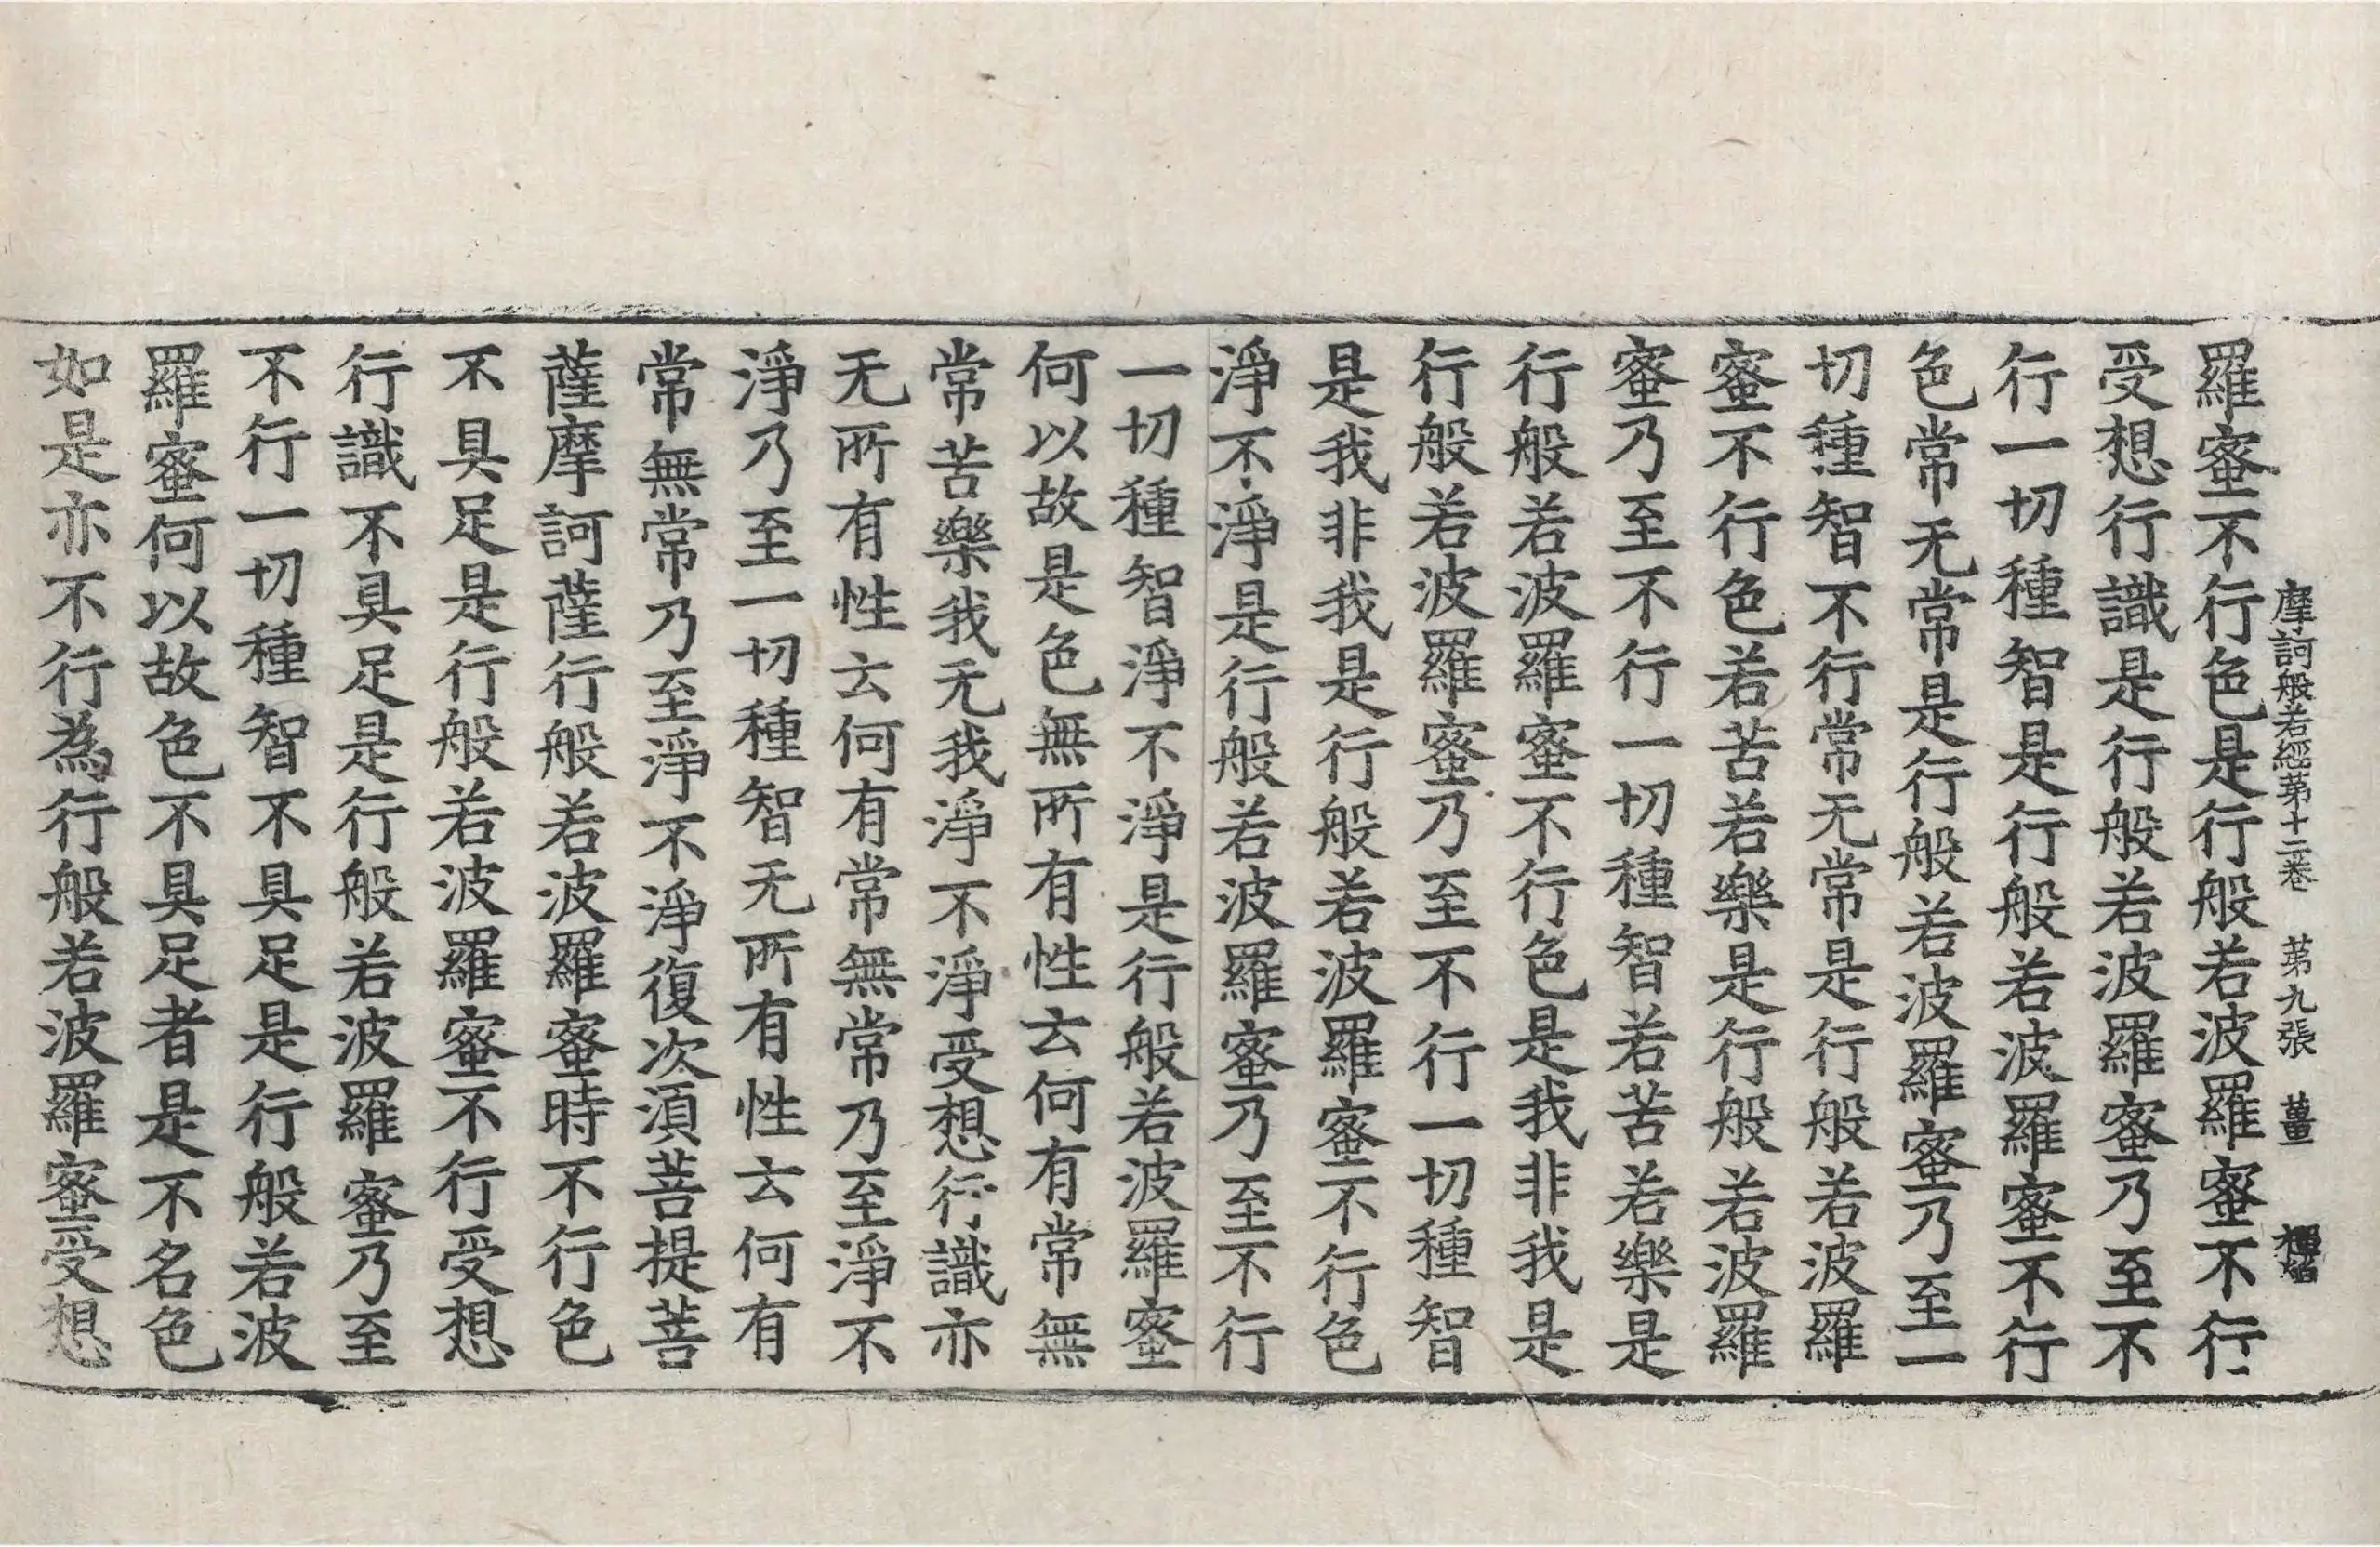 摩訶般若經第十二卷 第九張 薑
羅蜜不行色是行般若波羅蜜不行
受想行識是行般若波羅蜜乃至不
行一切種智是行般若波羅蜜不行
色常无常是行般若波羅蜜乃至一
切種智不行常无常是行般若波羅
蜜不行色若苦若樂是行般若波羅
蜜乃至不行一切種智若苦若樂是
行般若波羅蜜不行色是我非我是
行般若波羅蜜乃至不行一切種智
是我非我是行般若波羅蜜不行色
淨不淨是行般若波羅蜜乃至不行
一切種智淨不淨是行般若波羅蜜
何以故是色無所有性云何有常無
常苦樂我无我淨不淨受想行識亦
无所有性云何有常無常乃至淨不
淨乃至一切種智无所有性云何有
常無常乃至淨不淨復次湏菩提菩
薩摩訶薩行般若波羅蜜時不行色
不具足是行般若波羅蜜不行受想
行識不具足是行般若波羅蜜乃至
不行一切種智不具足是行般若波
羅蜜何以故色不具足者是不名色
如是亦不行為行般若波羅蜜受想